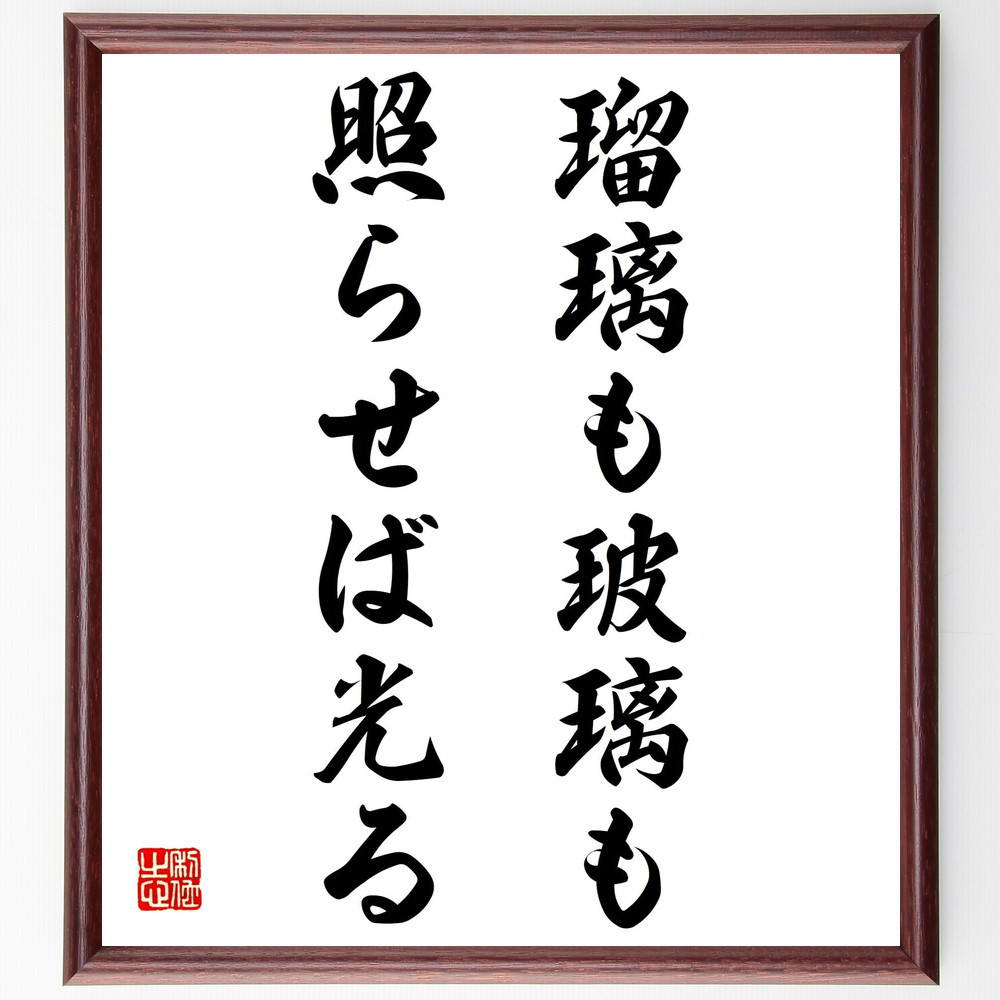 瑠璃も玻璃も
照らせば光る